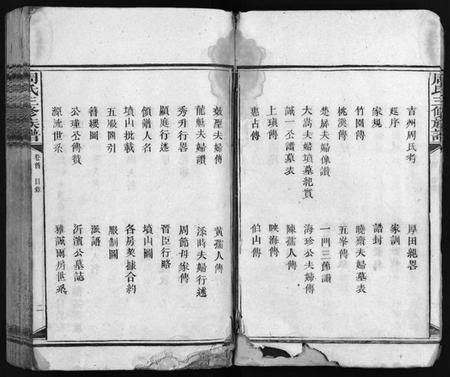 吉州周氏考
厚田総畧
廷序
家訓
家規
誥封
竹園傳
曉齋夫婦墓表
桃溪傳
五峯傳
楚屏夫婦像讚
一門三節讚
大嵩夫婦墳墓総賞
海珍公夫婦傳
誠一公譜墓表
陳孺人傳
上璜傳
映海傳
惠占傳
伯山傳
夫婦傳
黄孺人傳
龍魁夫婦讚
洙時夫婦行述
秀升行畧
周節母家傳
顯庭行述
晉臣行略
領贈人名
墳山圖
墳山批載
各房契據合約
五服圖引
服制圖
譜綱圖
派語
公瑾公傳賛
沂濱公墓誌
源流世系
雅誠兩房世系
周氏三修族譜
卷首 目錄
二